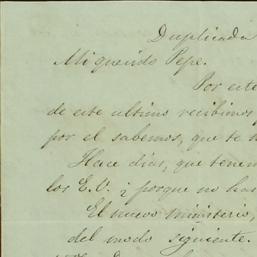 Duplicada
Mi querido Pepe.
Por este
de este ultimo recibimos
por el sabemos, que te
Hace dias, que tenem
los E.V. ¿ porque no has
El nuevo ministerio,
del modo siguiente.